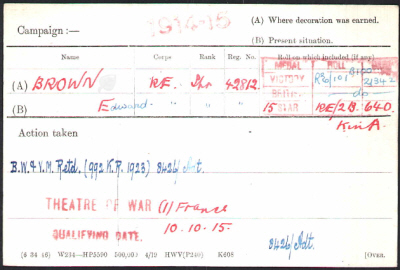 1914-15
(A) Where decoration was earned.
Campaign :—
(B) Present situation.
Name Corps Rank Reg. No. Roll on which included (if any)
MEDAL ROLL
(A) BROWN R.E. Spr 42812. VICTORY RE/101
(B) Edward. " " " 15 STAR RE/2B. 640.
Action taken KinA.
B.W. & V.M. Retd. (992 K.R. 1923) 8426/Adt.
THEATRE OF WAR (1) France
QUALIFYING DATE. 10.10.15.
8426/Adt.
(6 34 46) W234—HP5590 500,000 4/19 HWV(P240) K608 [Over.